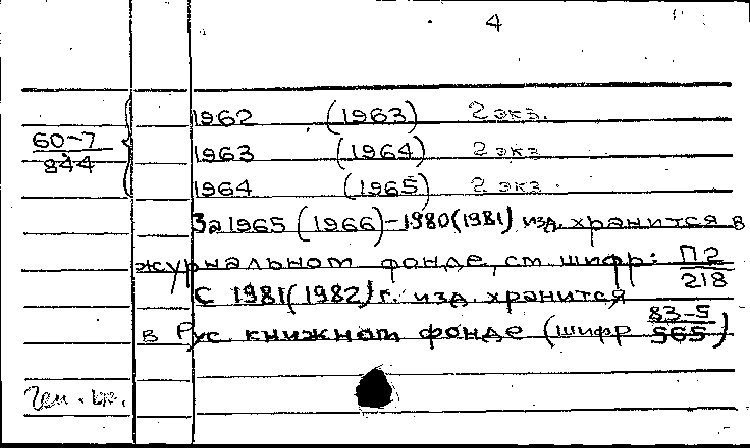 4
1962 (1963) 2 экз.
60-7/844 1963 (1964) 2 экз
1964 (1965) 2 экз.
За 1965 (1966)-1980(1981) изд. хранится в
журнальном фонде, см шифр: П2/218
С 1981(1982) г. изд хранится
в Рус книжном фонде (шифр 83-5/565)